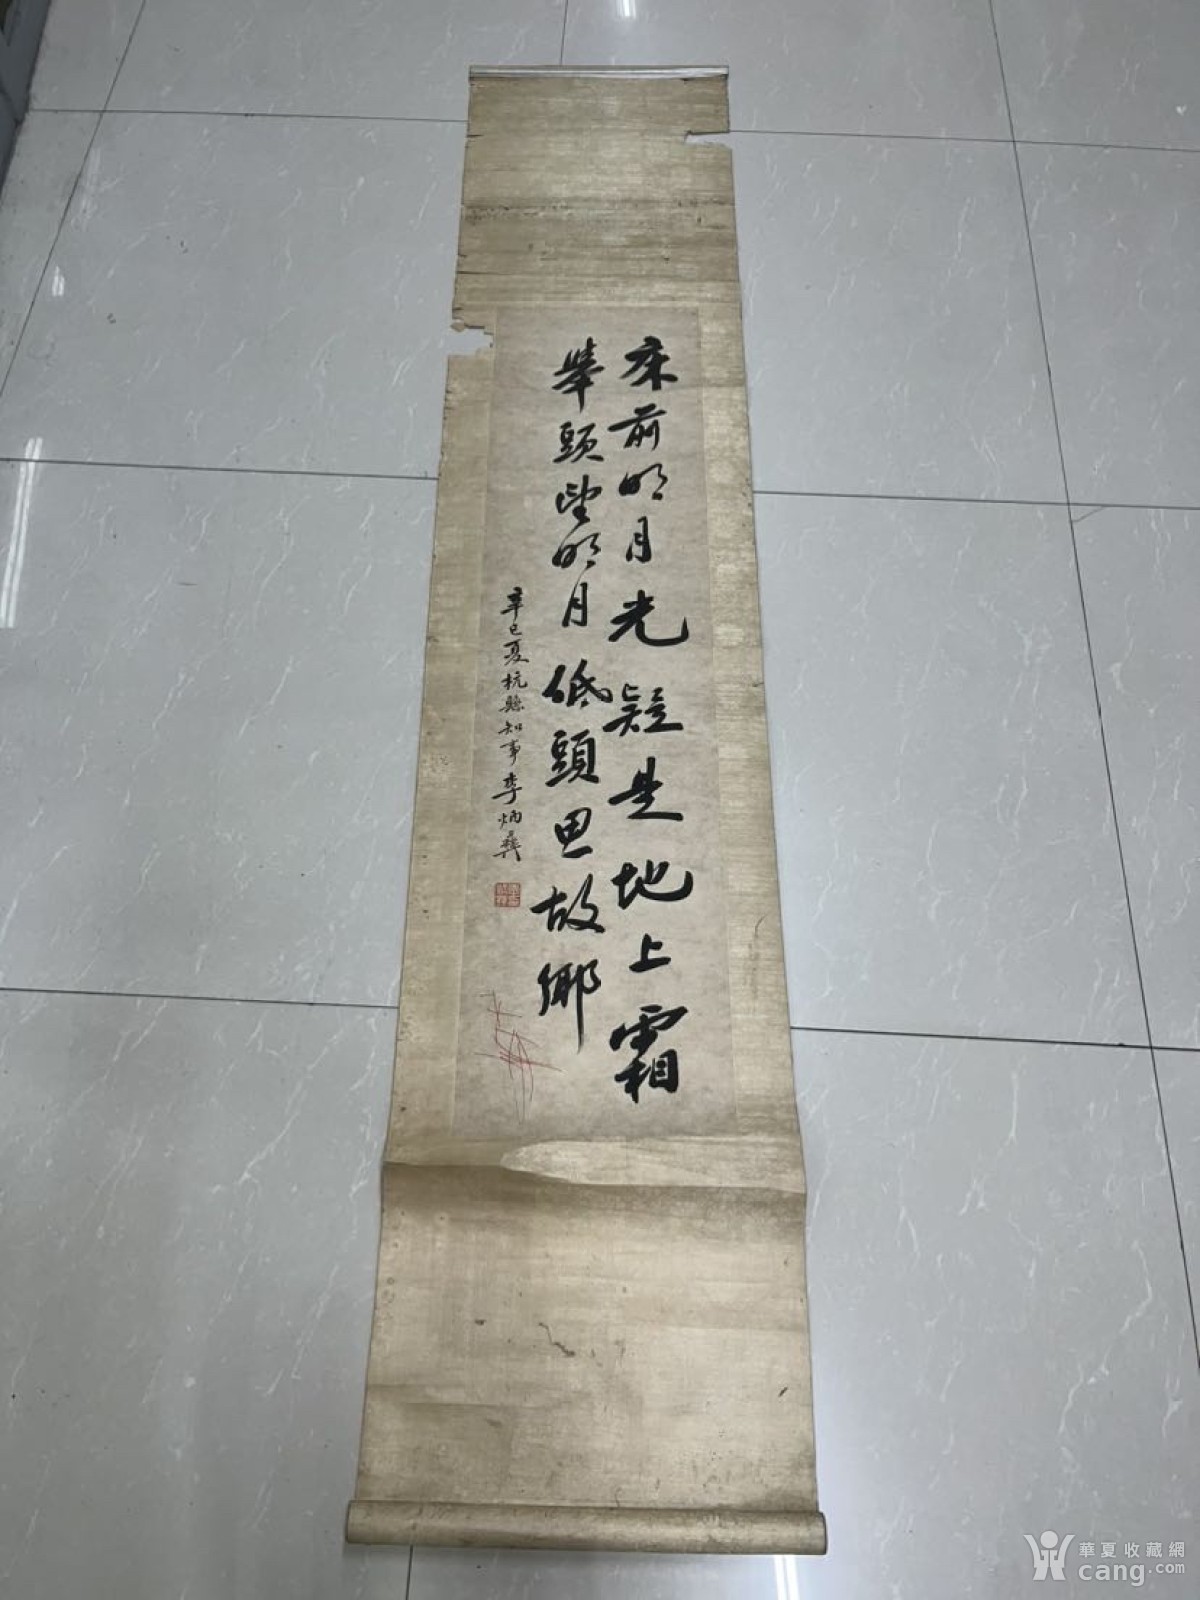 床前明月光疑是地上霜
舉頭望明月低頭思故鄉
辛巳夏杭縣知事李炳彝
華夏收藏網
cang.com